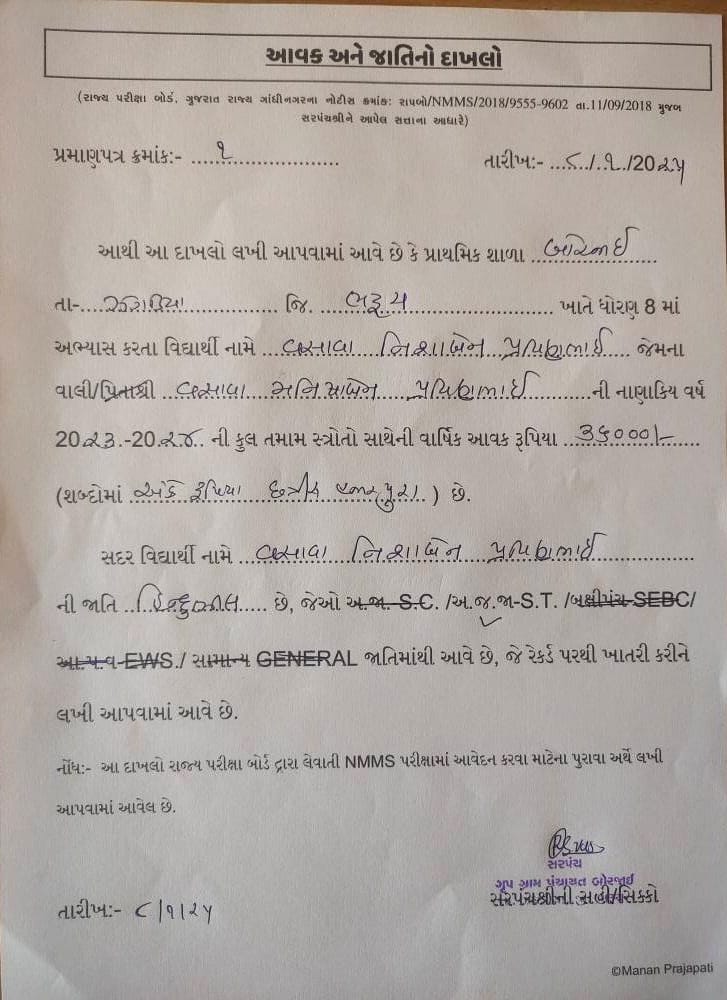 આવક અને જાતિનો દાખલો
(રાજ્ય પરીક્ષા બોર્ડ, ગુજરાત રાજ્ય ગાંધીનગરના નોટીસ ક્રમાંક: રાપબો/NMMS/2018/9555-9602 તા.11/09/2018 મુજબ
સરપંચશ્રીને આપેલ સત્તાના આધારે)
પ્રમાણપત્ર ક્રમાંક:- ...૧................... તારીખ:- ...૮../.૧../20૨૫
આથી આ દાખલો લખી આપવામાં આવે છે કે પ્રાથમિક શાળા
તા-....ઝગડિયા.............. જિ. ..ભરૂચ....................... ખાતે ધોરણ 8 માં
અભ્યાસ કરતા વિદ્યાર્થી નામે ...વસાવા...નિશાબેન...પ્રવિણભાઈ... જેમના
વાલી/પિતાશ્રી ...વસાવા...મનિષાબેન...પ્રવિણભાઈ..........ની નાણાકિય વર્ષ
20.૨૩.-20.૨૪.. ની કુલ તમામ સ્ત્રોતો સાથેની વાર્ષિક આવક રૂપિયા ...૩૬૦૦૦/-....
(શબ્દોમાં ..અંકે રૂપિયા છત્રીસ હજાર પુરા.. ) છે.
સદર વિદ્યાર્થી નામે ...વસાવા નિશાબેન પ્રવિણભાઈ...............
ની જાતિ ..હિન્દુભીલ..... છે, જેઓ અ.જા. S.C. /અ.જ.જા-S.T. /બક્ષીપંચ-SEBC/
આ.પ.વ-EWS./ સામાન્ય GENERAL જાતિમાંથી આવે છે, જે રેકર્ડ પરથી ખાતરી કરીને
લખી આપવામાં આવે છે.
નોંધ:- આ દાખલો રાજ્ય પરીક્ષા બોર્ડ દ્વારા લેવાતી NMMS પરીક્ષામાં આવેદન કરવા માટેના પુરાવા અર્થે લખી
આપવામાં આવેલ છે.
સરપંચ
ગૃપ ગ્રામ પંચાયત બોરજાઈ
સરપંચશ્રીની સહી/સિક્કો
તારીખ:- ૮/૧/૨૫
©Manan Prajapati